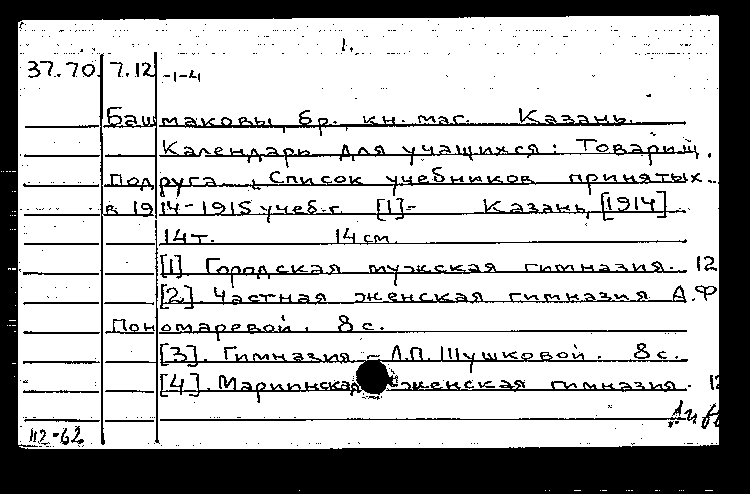 1.
37.70 7.12 -1-4
Башмаковы, бр., кн. маг. Казань.
Календарь для учащихся: Товарищ.
Подруга. Список учебников принятых
в 1914-1915 учеб. г. [1]- Казань, [1914]
14 т. 14 см.
[1]. Городская мужская гимназия. 12
[2]. Частная женская гимназия А.Ф
Пономаревой. 8 с.
[3]. Гимназия - Л.П. Шушковой. 8 с.
[4]. Мариинская женская гимназия. 12
42-62